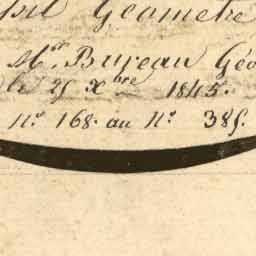 Géomètre
Mr. Bureau Géo
le 25 Xbre 1845.
No. 168. au No. 385.